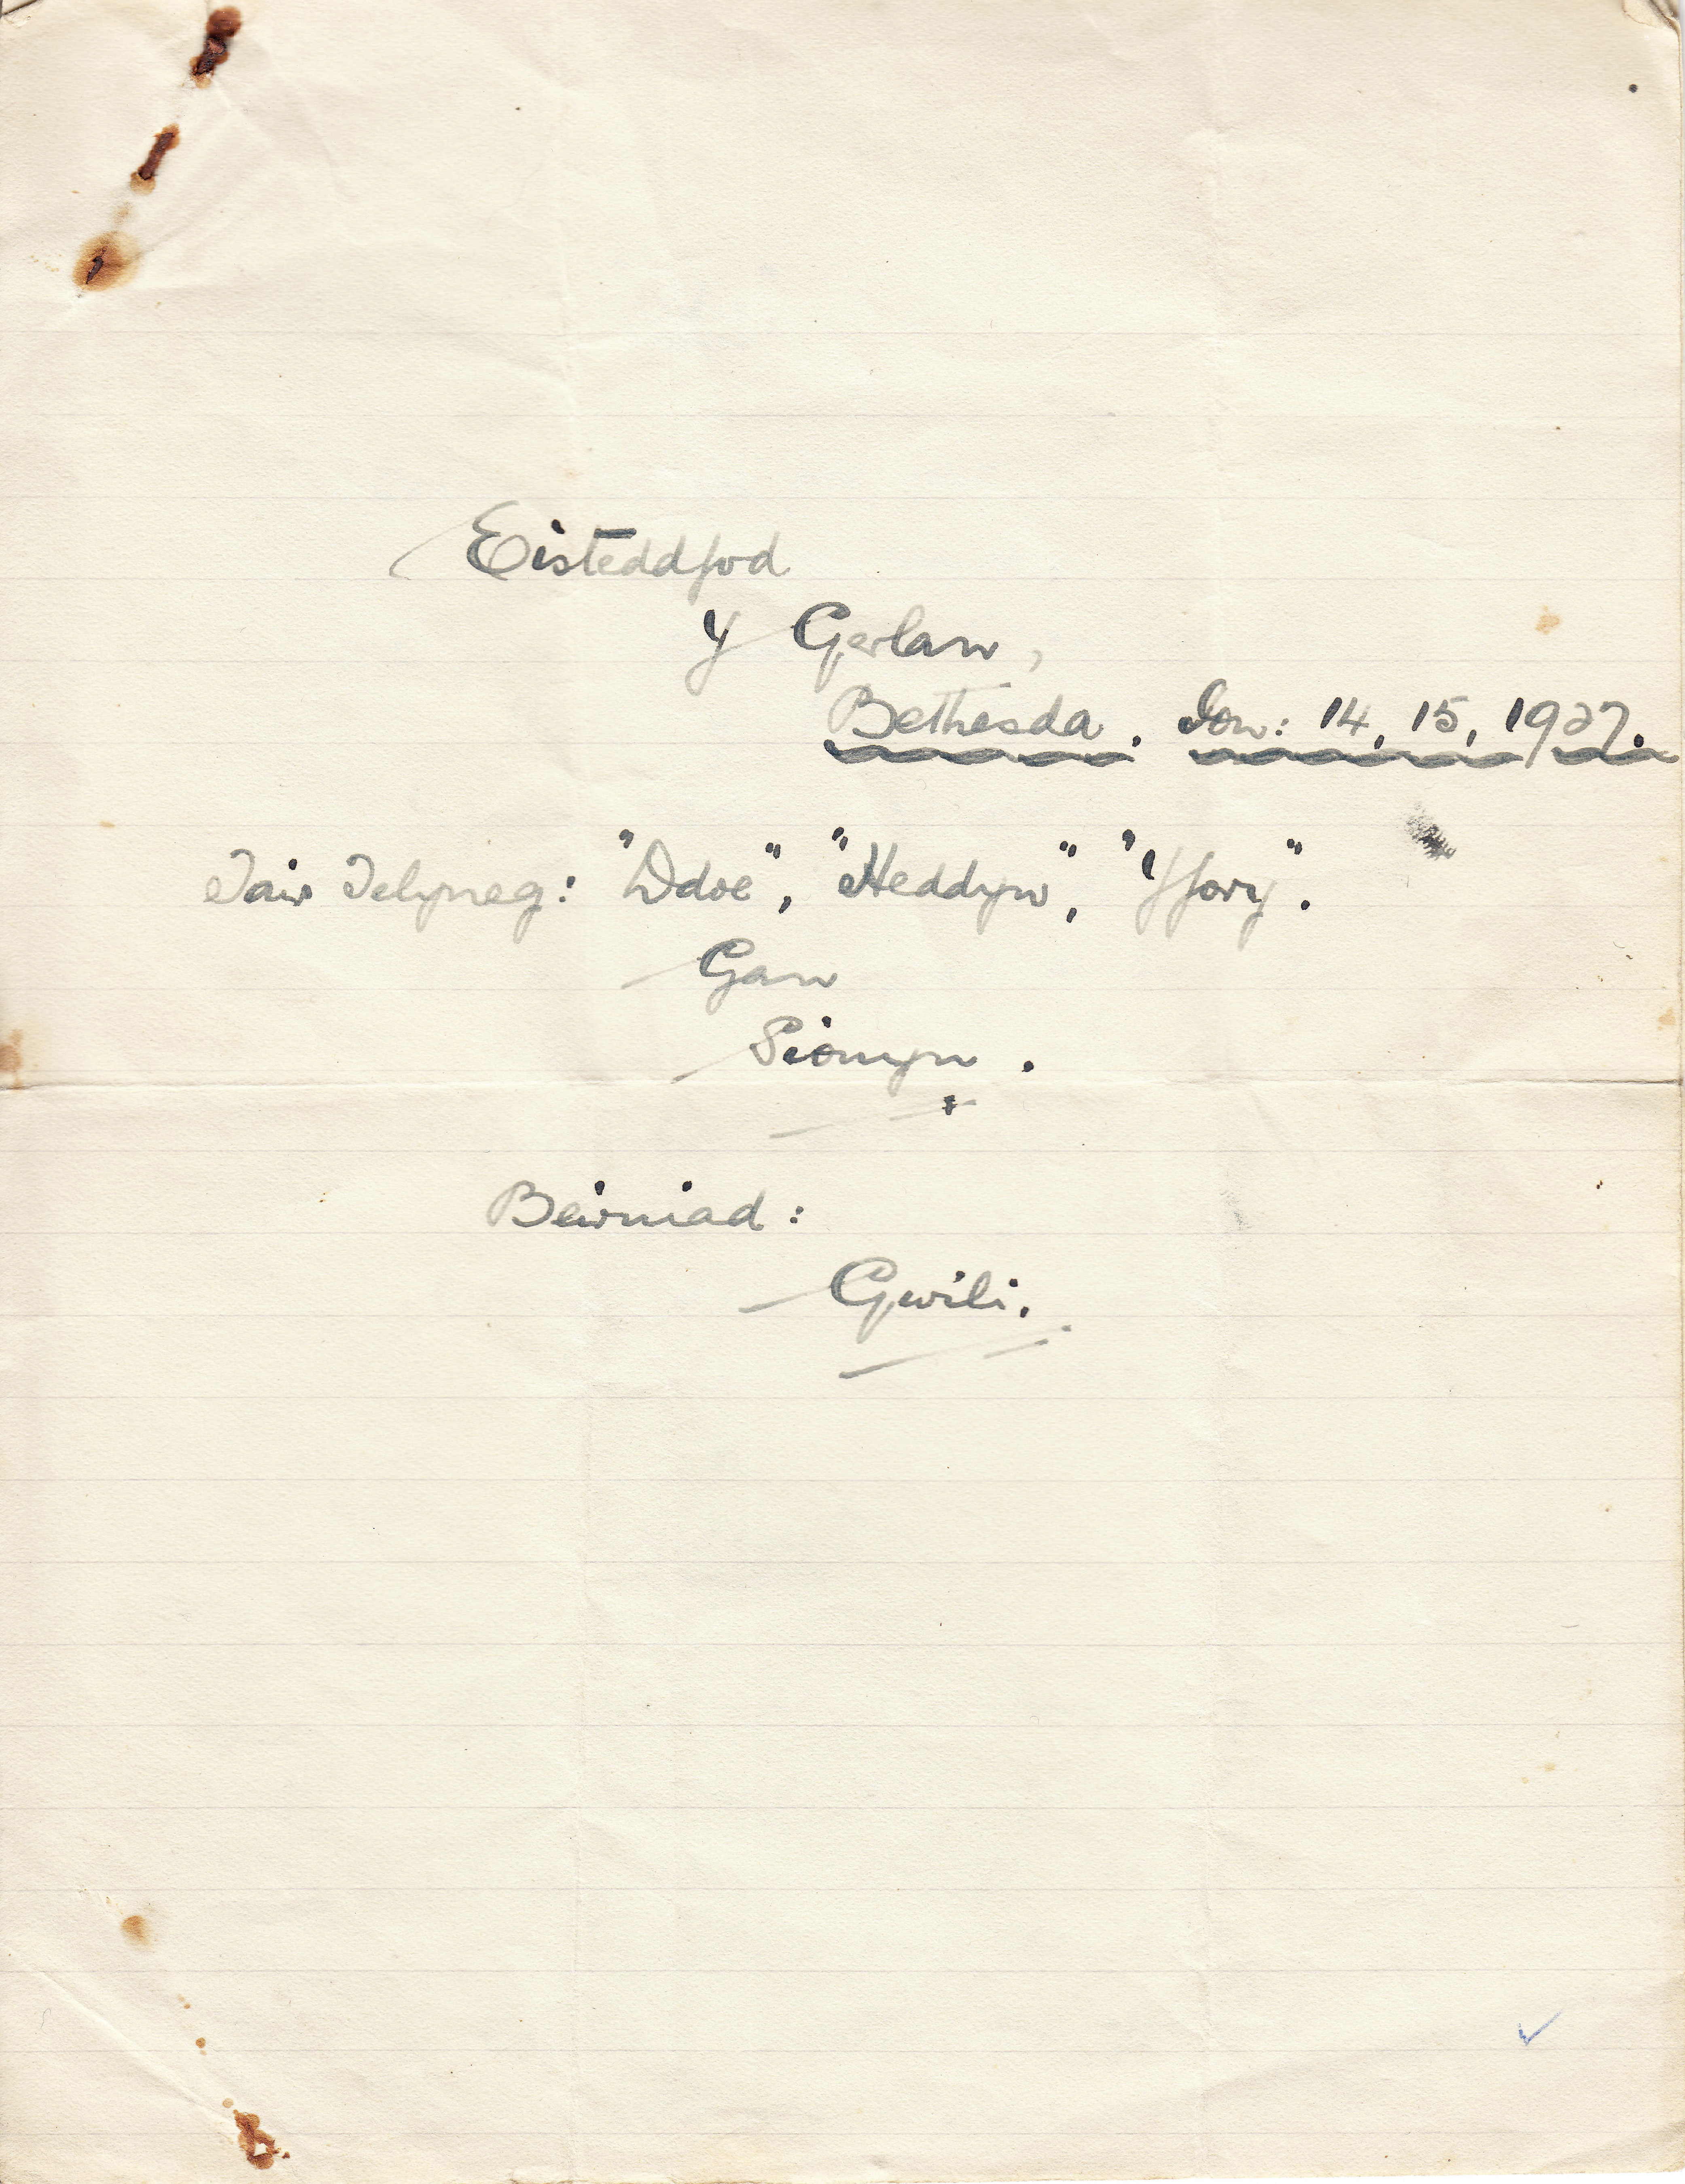 Eisteddfod
Y Gerlan,
Bethesda. Ion: 14, 15, 1927.
Tair Telyneg: "Ddoe", "Heddyw", "Yfory".
Gan
Sionyn.
Beirniad:
Gwili.